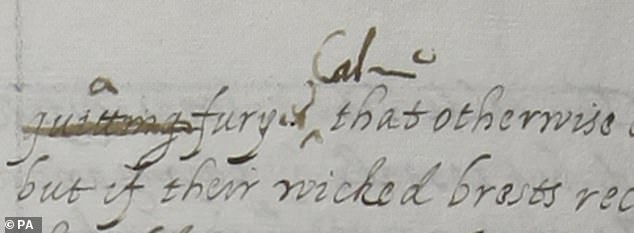 fury that otherwise
but if their wicked brests rec
© PA